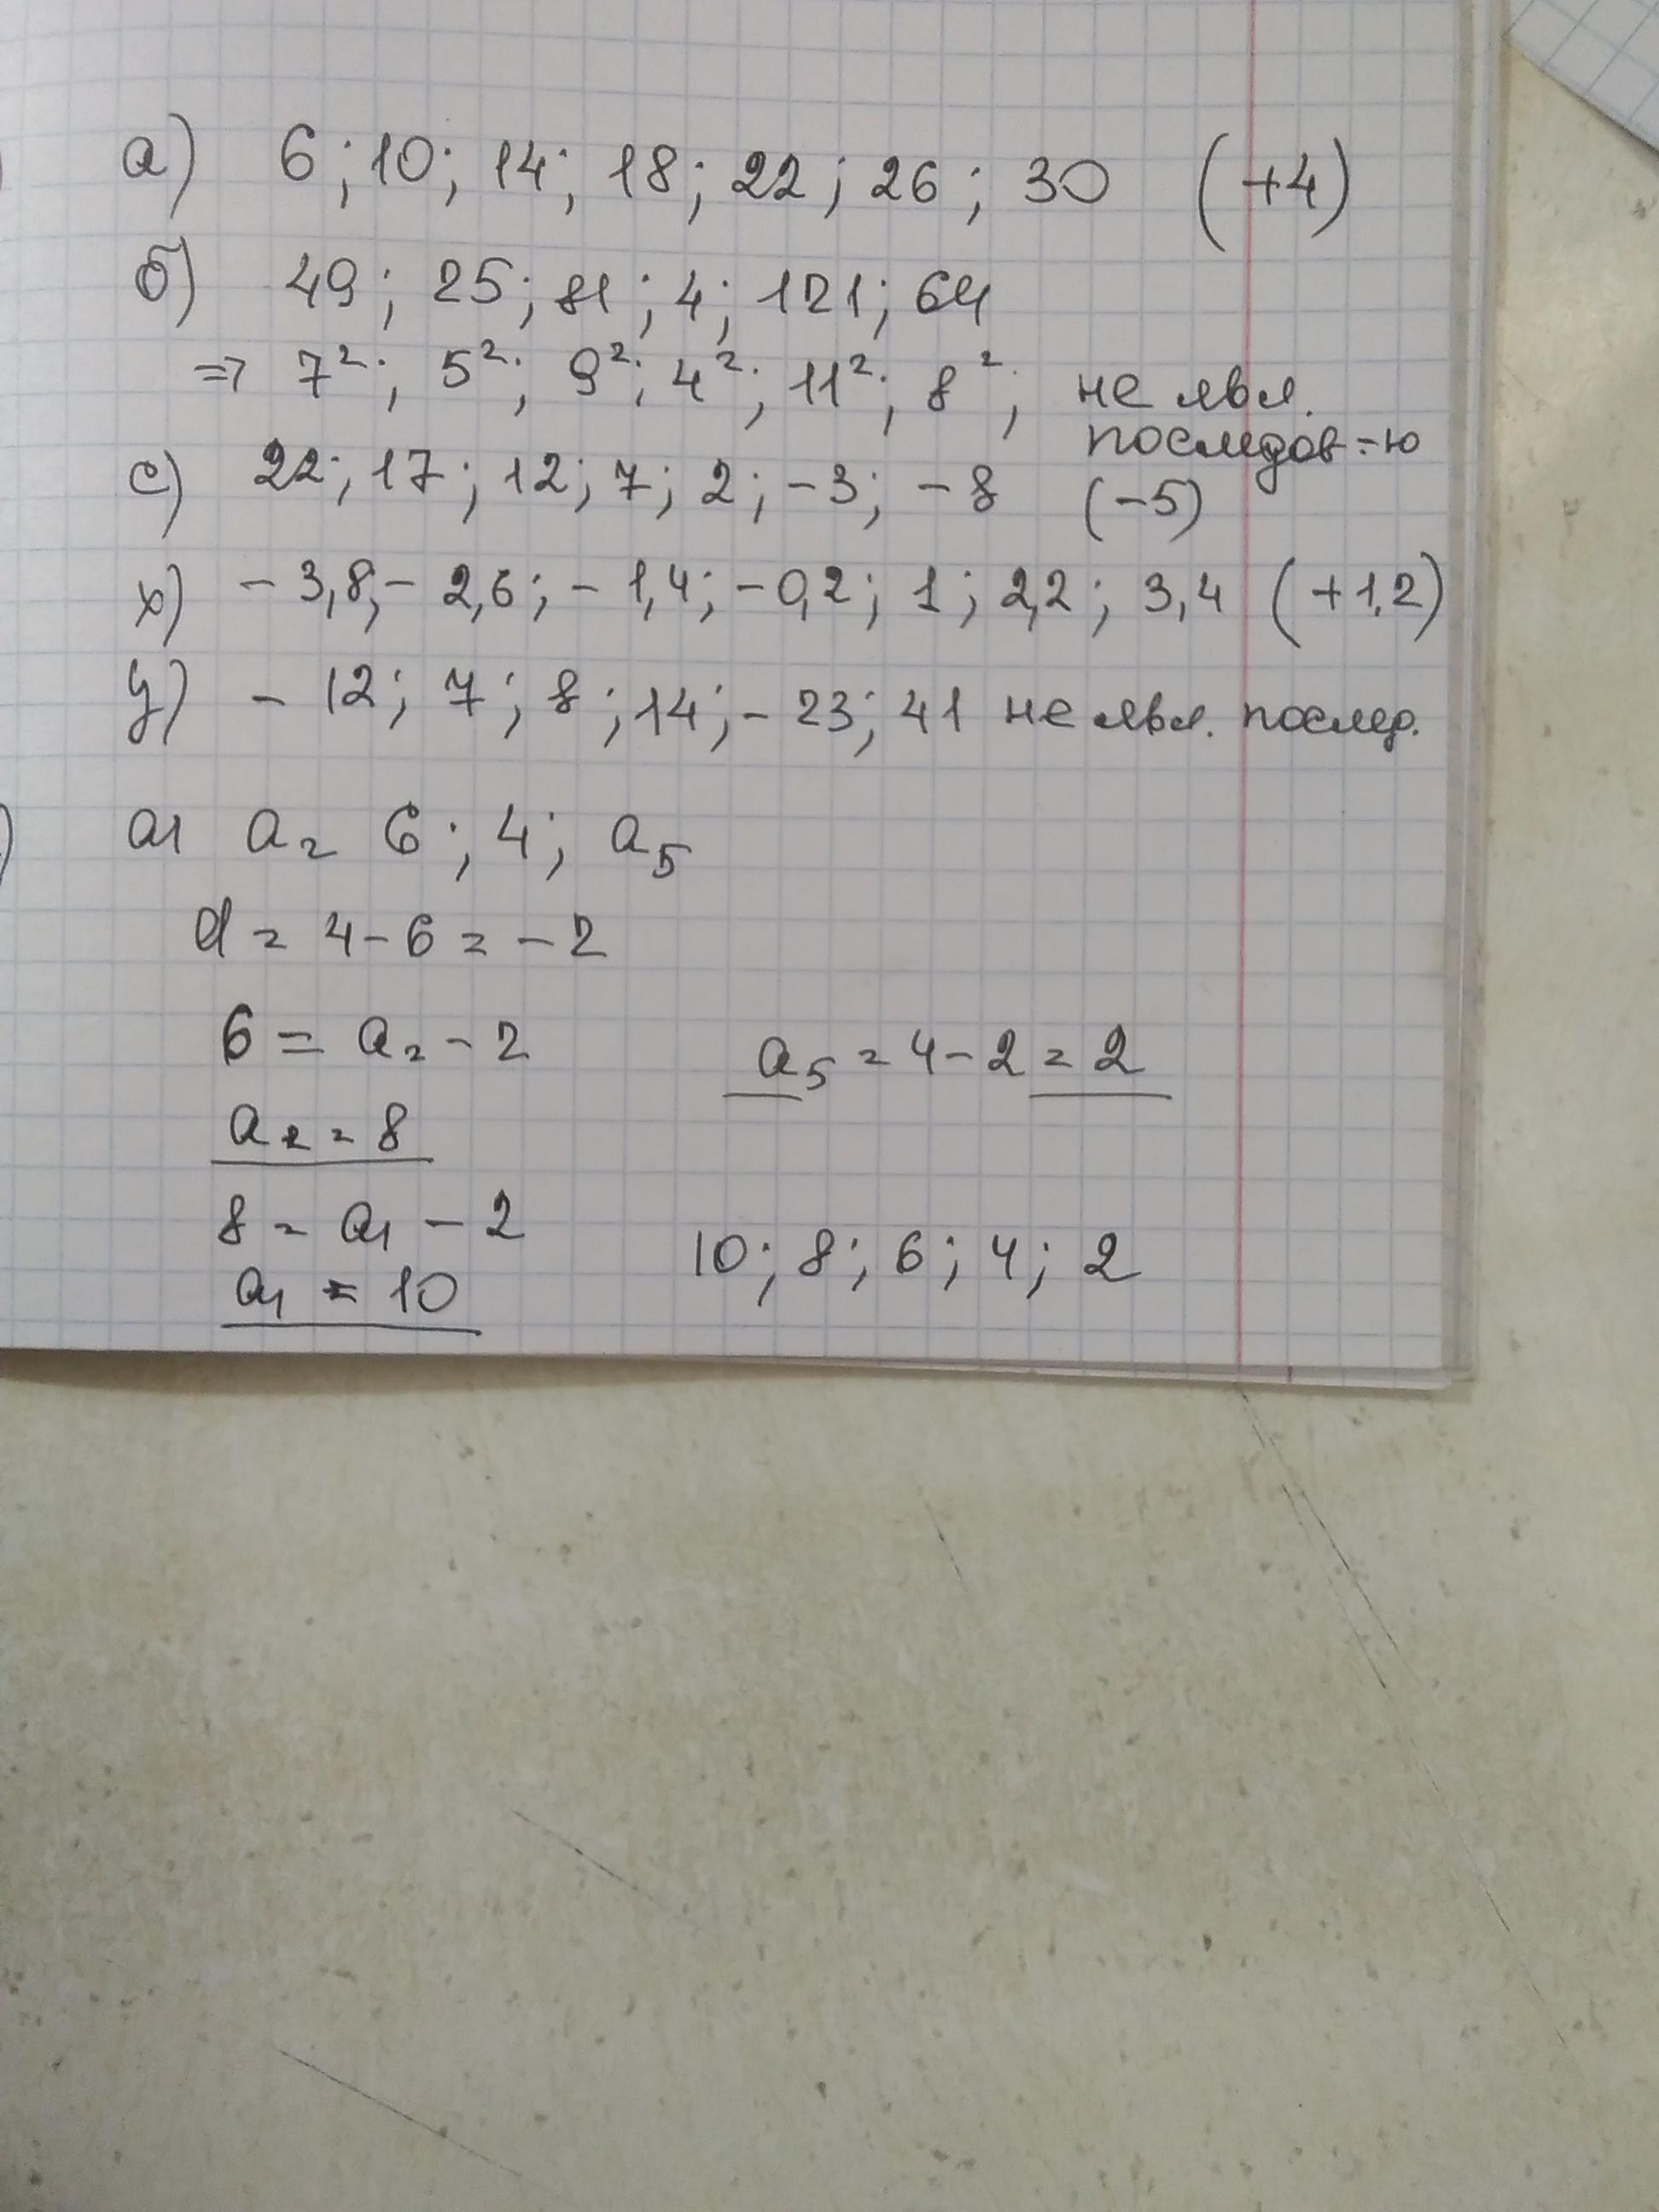 а) 6; 10; 14; 18; 22; 26; 30 (+4)
б) 49; 25; 81; 4; 121; 64
=> 7²; 5²; 9²; 4²; 11²; 8²; не явл.
последов-ю
с) 22; 17; 12; 7; 2; -3; -8 (-5)
х) -3,8; -2,6; -1,4; -0,2; 1; 2,2; 3,4 (+1,2)
у) -12; 7; 8; 14; -23; 41 не явл. послед.
a₁ a₂ 6; 4; a₅
d = 4 - 6 = -2
6 = a₂ - 2 a₅ = 4 - 2 = 2
a₂ = 8
8 = a₁ - 2
10; 8; 6; 4; 2
a₁ = 10